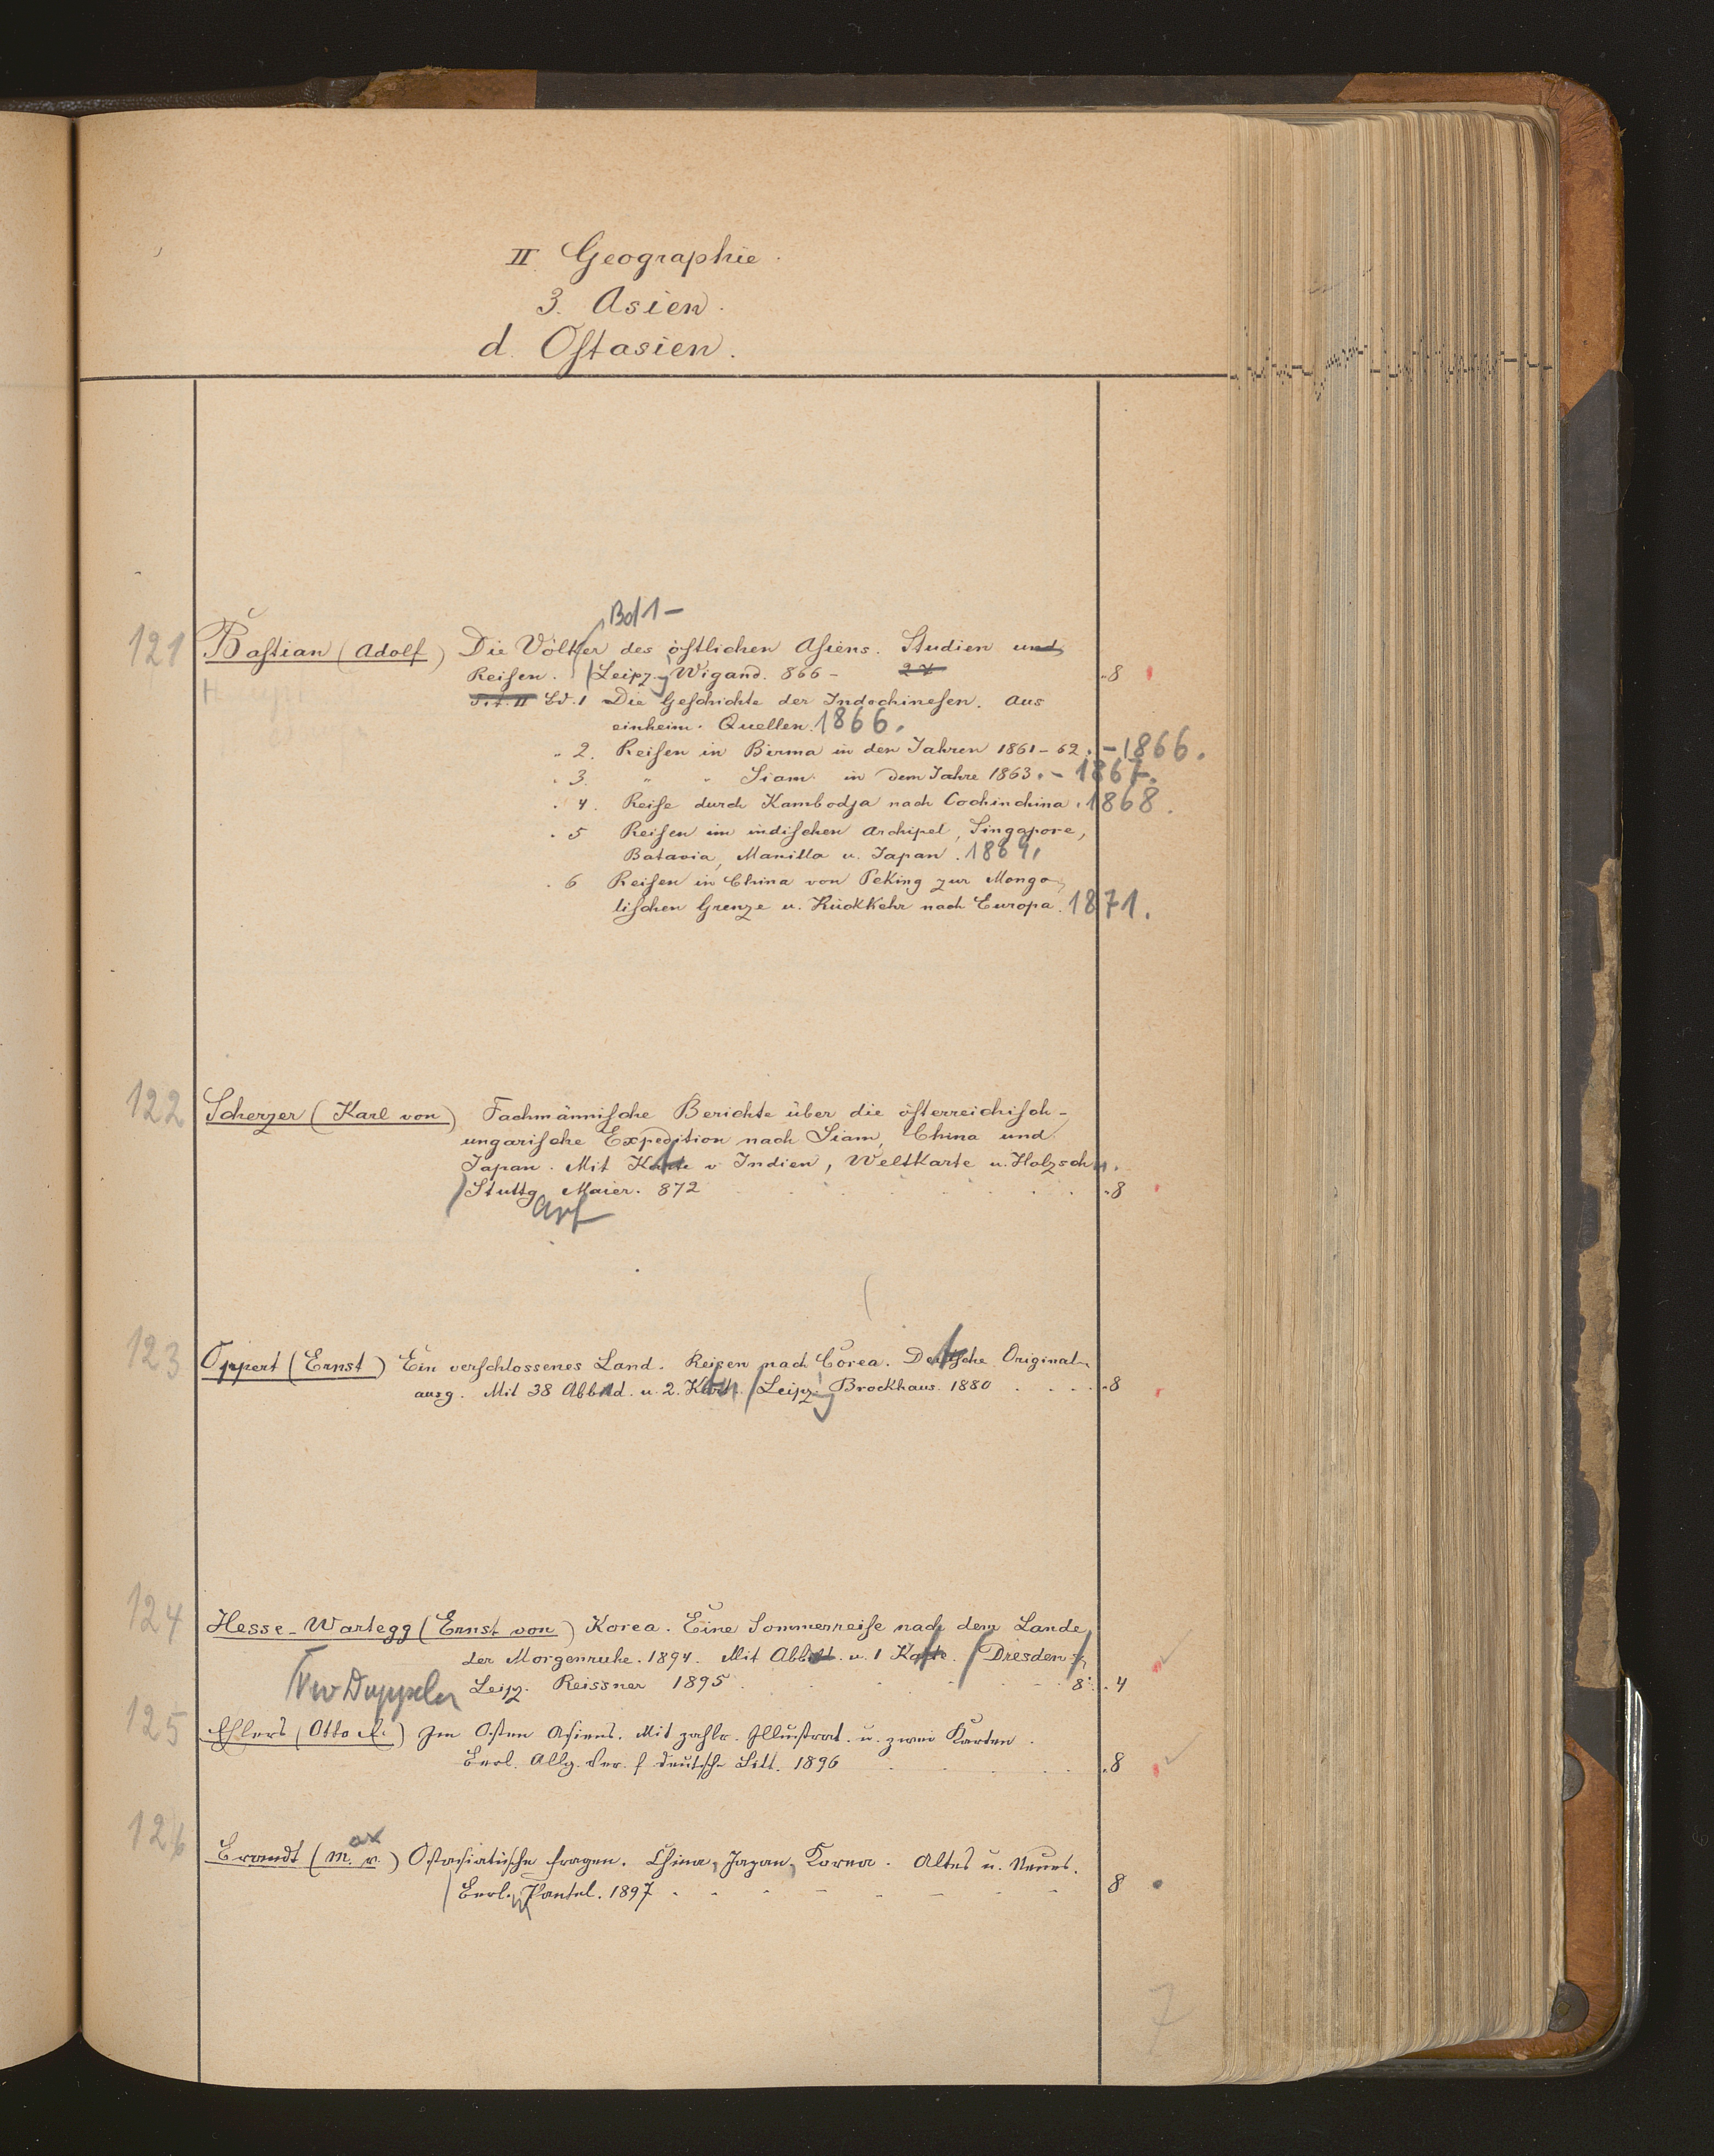 II Geographie.
3. Asien.
d. Ostasien.
Bd 1 –
121 Bastian (Adolf) Die Völker des östlichen Asiens. Studien und
Reisen. Leipz. Wigand. 866 – 8
Bd. 1 Die Geschichte der Indochinesen. Aus
einheim. Quellen. 1866.
„ 2. Reisen in Birma in den Jahren 1861–62. – 1866.
„ 3. „ „ Siam in dem Jahre 1863. – 1867.
„ 4. Reise durch Kambodja nach Cochinchina. 1868.
„ 5 Reisen im indischen Archipel, Singapore,
Batavia, Manilla u. Japan. 1869.
„ 6 Reisen in China von Peking zur Mongo-
lischen Grenze u. Rückkehr nach Europa. 1871.
122 Scherzer (Karl von) Fachmännische Berichte über die österreichisch-
ungarische Expedition nach Siam, China und
Japan. Mit Karte v Indien, Weltkarte u. Holzschn.
Stuttg Maier. 872 8
art
123 Oppert (Ernst) Ein verschlossenes Land. Reisen nach Corea. Deutsche Original-
ausg. Mit 38 Abbild. u. 2. Kart. Leipz. Brockhaus. 1880 8
124 Hesse-Wartegg (Ernst von) Korea. Eine Sommerreise nach dem Lande
der Morgenruhe. 1894. Mit Abbild. u. 1 Karte. Dresden
Leipz. Reissner 1895 8. 4
125 Ehlers (Otto E.) Im Osten Asiens. Mit zahlr. Illustrat. u. zwei Karten.
Berl. Allg. Ver. f deutsche Litt. 1896 8
ax
126 Brandt (M. v.) Ostasiatische Fragen. China, Japan, Korea. Altes u. Neues.
Berl. Paetel. 1897 8
7